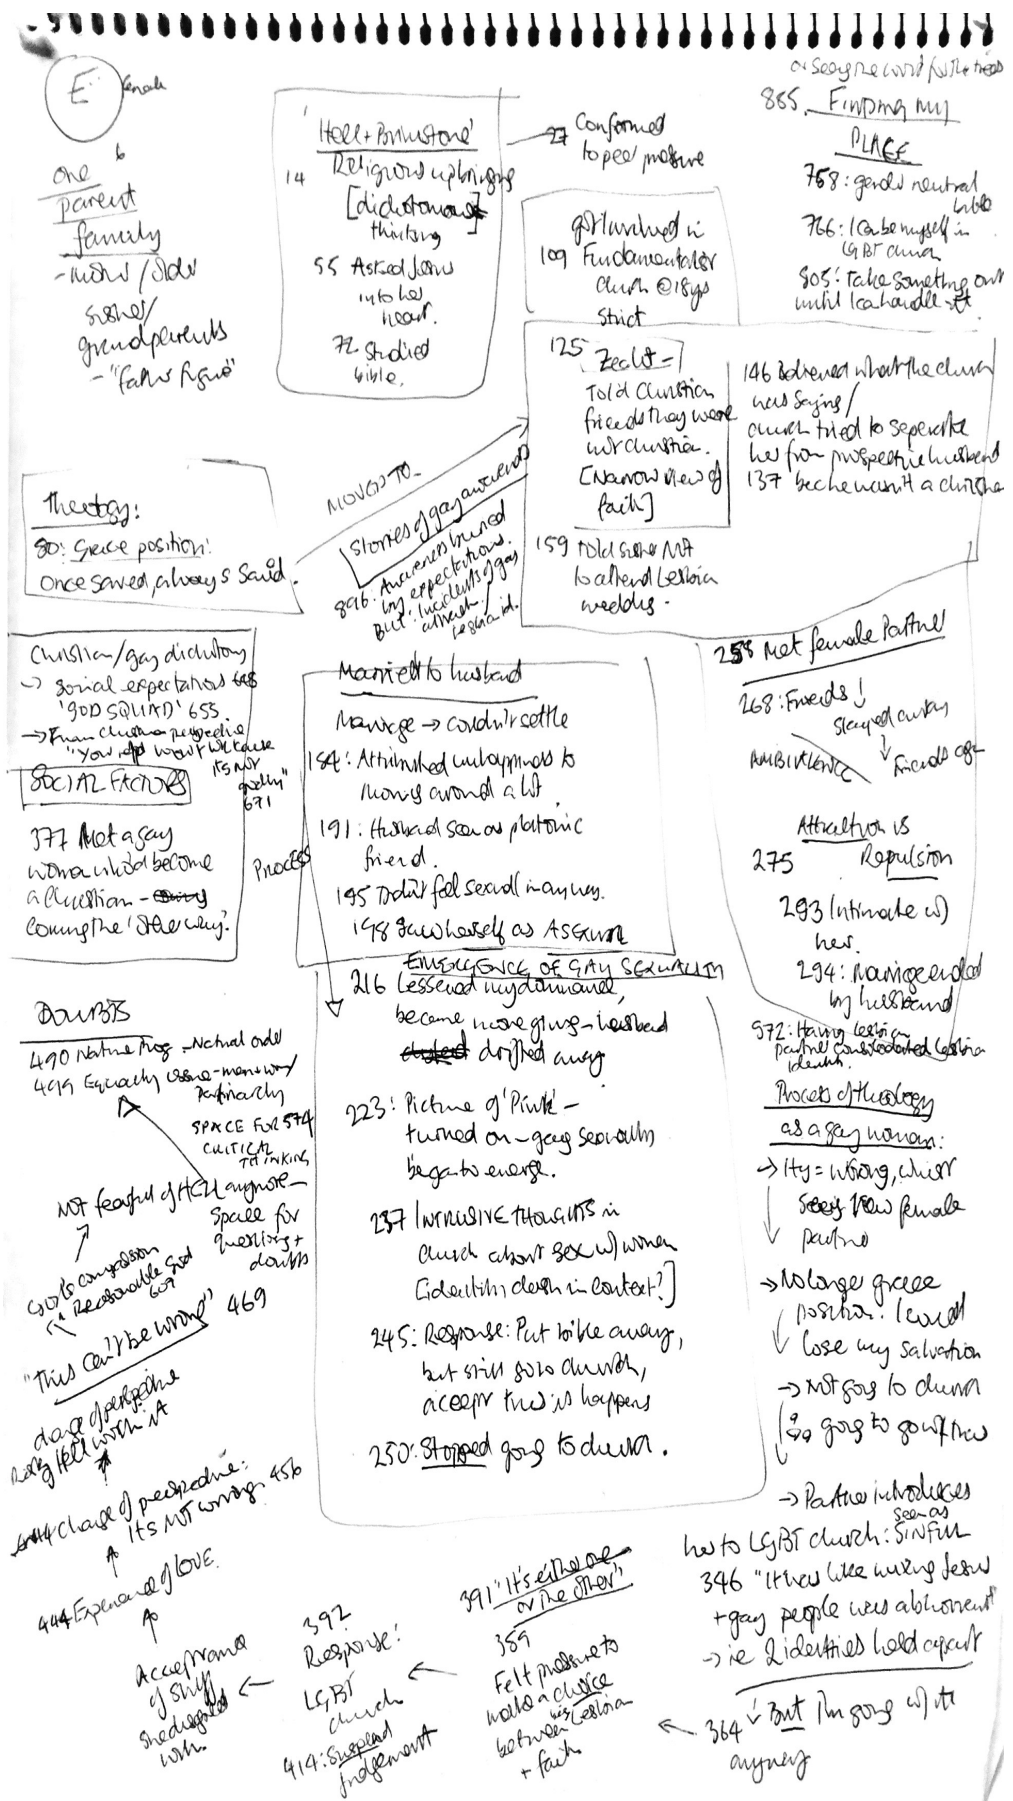 E female
one
parent
family
grandparents
- "father figure"
'Hell + Brimstone'
14 Religious upbringing
[dichotomous]
thinking
55 Asked Jesus
into her
heart.
72 Studied
bible.
27 Conformed
to peer pressure
got involved in
109 Fundamentalist
church @ 18yrs
strict
or seeing the wood for the trees
885. Finding my
PLACE
758: gender neutral
bible
766: I can be myself in
LGBT church
805: Take something out
until I can handle it
125 Zealot -
Told Christian
friends they were
not christian.
[Narrow view of
faith]
146 Believed what the church
was saying /
church tried to seperate
her from prospective husband
137 bec he wasn't a christian
159 Told sister NOT
to attend Lesbian
wedding.
Theology:
80: Grace position:
once saved, always said.
MOVES TO
Stories of gay awareness
896: Awareness buried
by expectations.
BUT: Incidents of gay
attrach. /
Lesbian id.
Christian/gay dichotomy
-> social expectations 648
'GOD SQUAD' 655
-> From Christian perspective
its not
godly"
671
SOCIAL FACTORS
377 Met a gay
woman who'd become
a Christian -
coming the 'other way'.
PROCESS
Married to husband
Marriage -> couldn't settle
184: Attributed unhappiness to
moving around a lot
191: Husband seen as platonic
friend.
195 Didn't feel sexual in any way.
198 Saw herself as ASEXUAL
EMERGENCE OF GAY SEXUALITY
216 Lessened my dominance,
became more giving - husband
drifted away
223: Picture of 'Pink' -
turned on - gay sexuality
began to emerge.
237 INTRUSIVE THOUGHTS in
church about sex w/ women
[identity clash in context?]
245: Response: Put bible away,
but still go to church,
accept this is happens
250: Stopped going to church.
258 Met female Partner
268: Friends!
Stayed away
Friends again
AMBIVALENCE
Attraction vs
275 Repulsion
293 Intimate w/
her.
294: Marriage ended
by husband
972: Having lesbian
partner consolidated Lesbian
identity.
Process of theology
as a gay woman:
-> Hty = wrong, whilst
female
partner
-> No longer grace
position: I could
lose my salvation
-> Not going to church
-> Partner introduces
her to LGBT church: seen as SINFUL
346 "It was like mixing Jesus
+ gay people was abhorrent"
-> ie 2 identities held apart
364 But I'm going w/ it
anyway
391 "It's either one
or the other"
389
Felt pressure to
make a choice
between Lesbian
+ faith
392
Response:
LGBT
church
414: Suspend
judgement
Acceptance
of stuff
she disagreed
with.
444 Experience of LOVE.
Change of perspective:
Its NOT wrong. 456
change of perspective
"This can't be wrong" 469
God's compassion
Reasonable God
607
NOT fearful of HELL anymore -
Space for
questions +
doubts
SPACE FOR 574
CRITICAL
THINKING
DOUBTS
490 Nature Prog - Natural order
499 Equality issue - men + women/
Patriarchy